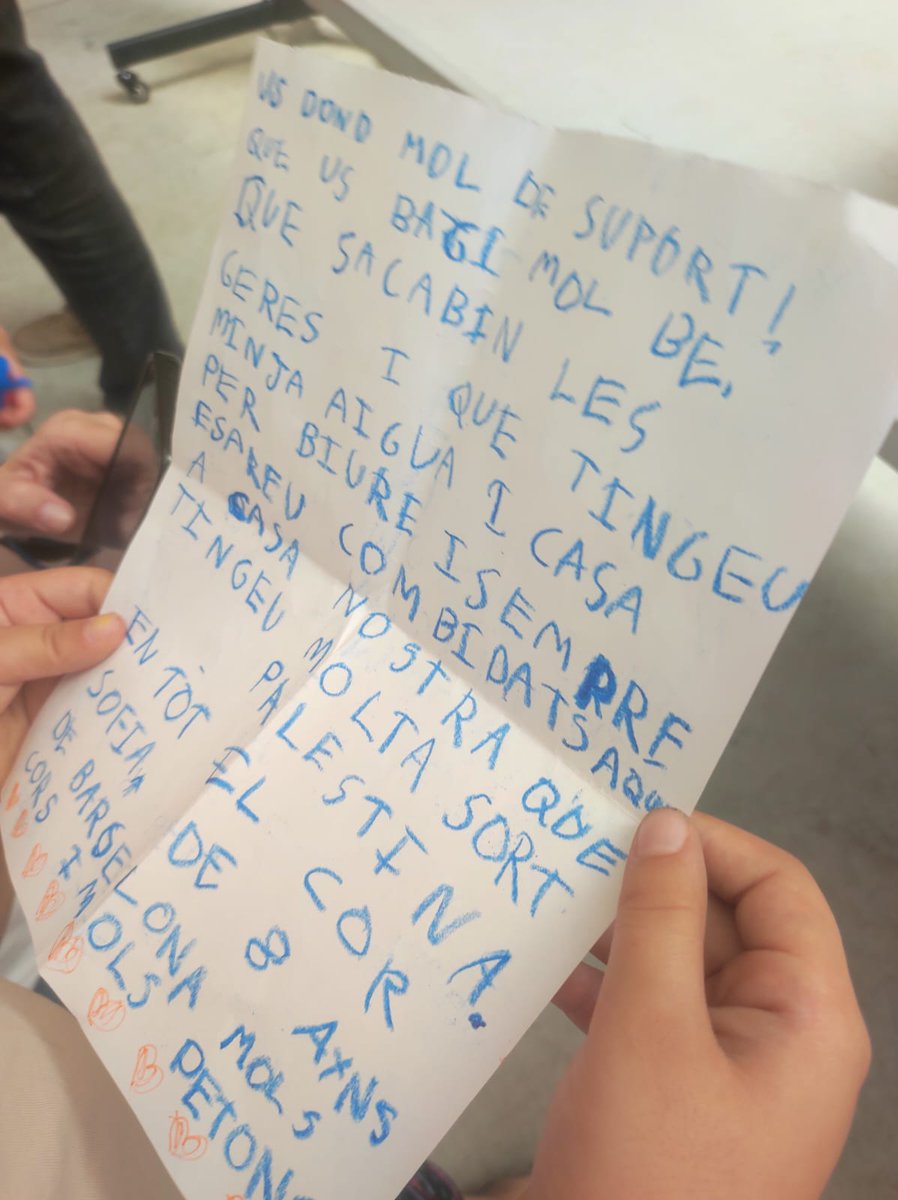 US DOND MOL DE SUPORT!
QUE US BAGI MOL BE,
QUE SACABIN LES
GERES I QUE TINGEU
MINJA AIGUA I CASA
PER BIURE I SEMRRE
ESAREU COMBIDATS
A CASA NOSTRA QUE
TINGEU MOLTA SORT
PALESTINA.
EN TÒT EL COR
SOFIA DE 8
DE BARCELONA MOLS
CORS I MOLS